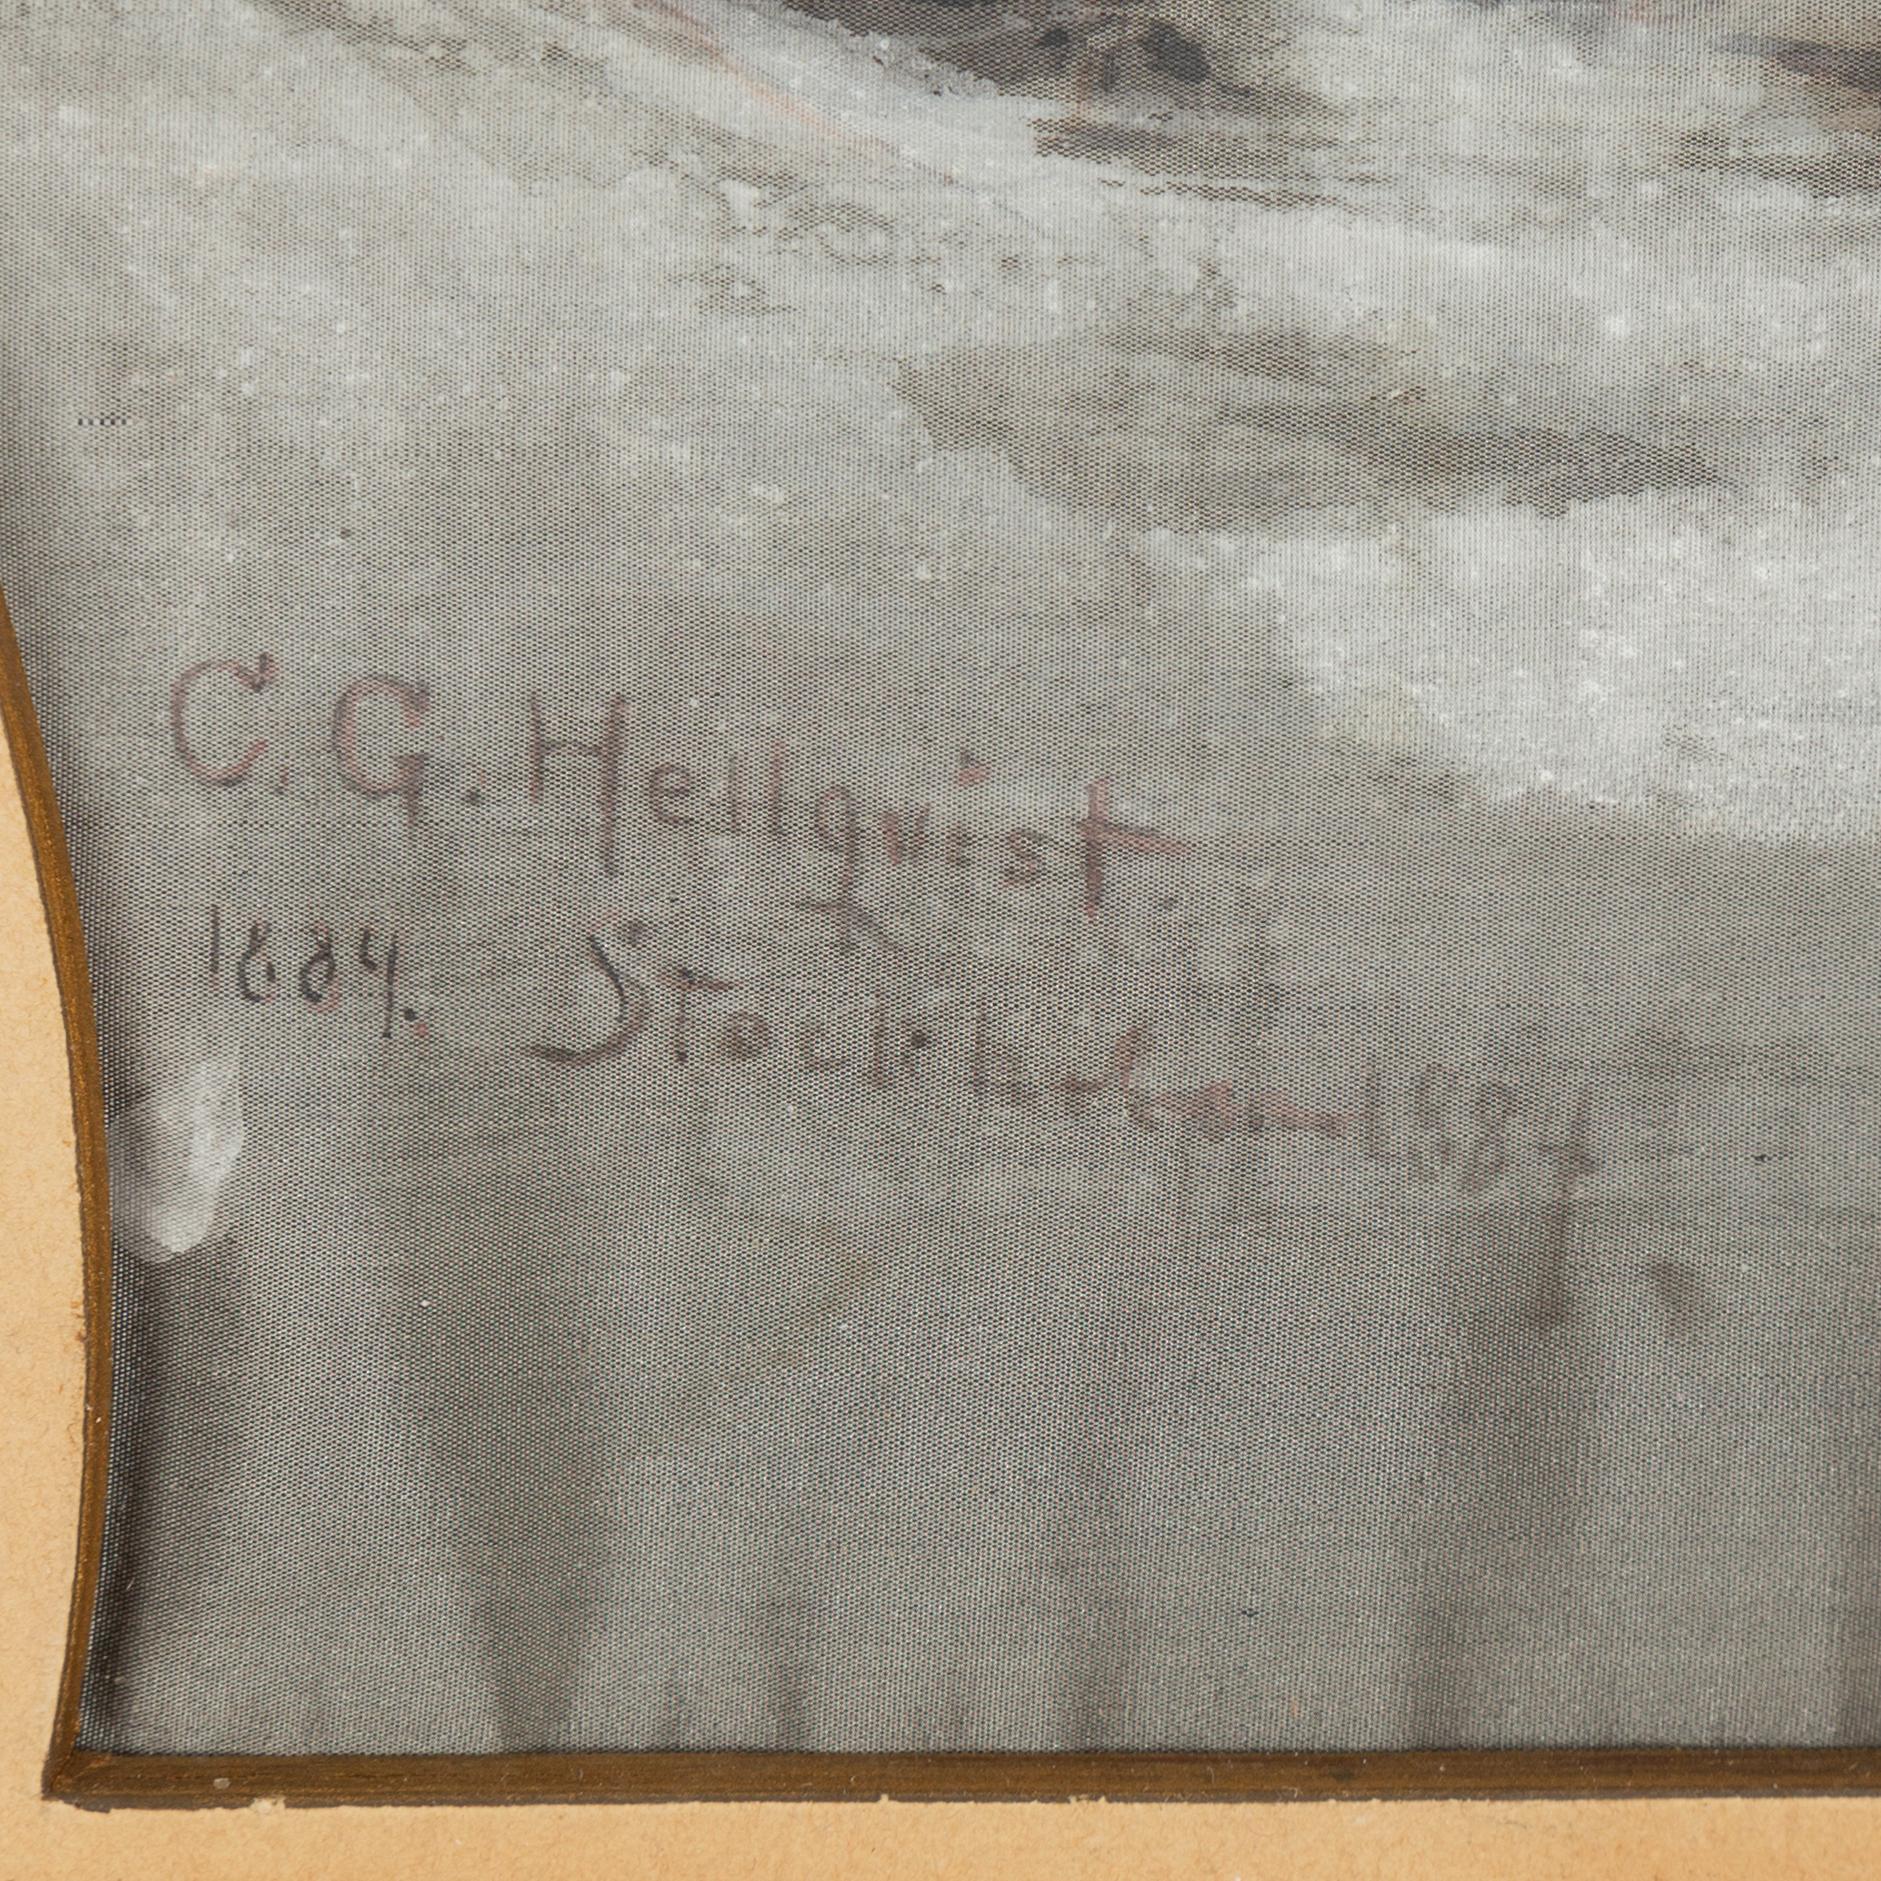 C. G. Hellqvist
1884. Stockholm 1884